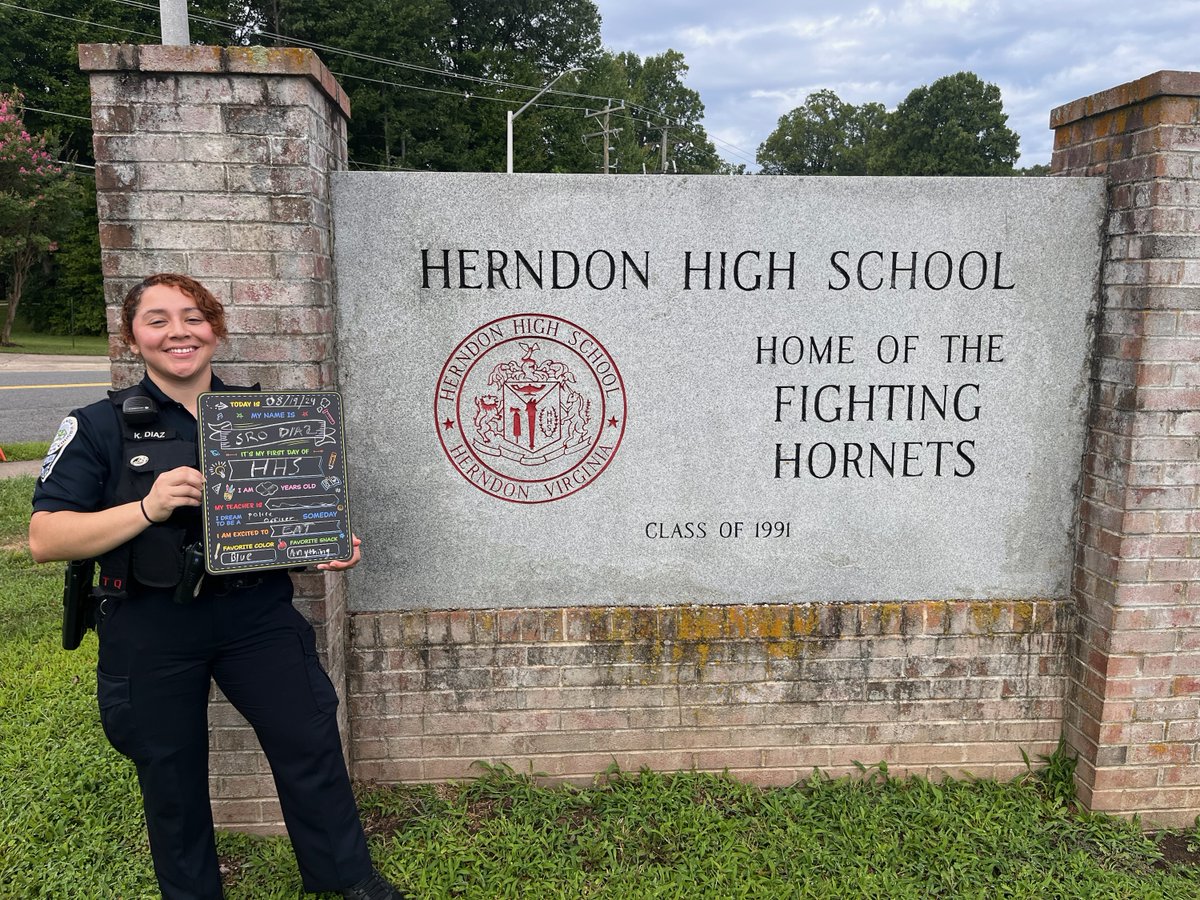 HERNDON HIGH SCHOOL
HERNDON HIGH SCHOOL
HERNDON VIRGINIA
HOME OF THE
FIGHTING
HORNETS
CLASS OF 1991
K. DIAZ
TODAY IS 08/19/24
MY NAME IS
SRO DIAZ
IT'S MY FIRST DAY OF
HHS
I AM YEARS OLD
MY TEACHER IS
I DREAM Police
TO BE A officer SOMEDAY
I AM EXCITED TO EAT
FAVORITE COLOR FAVORITE SNACK
Blue Anything
T Q